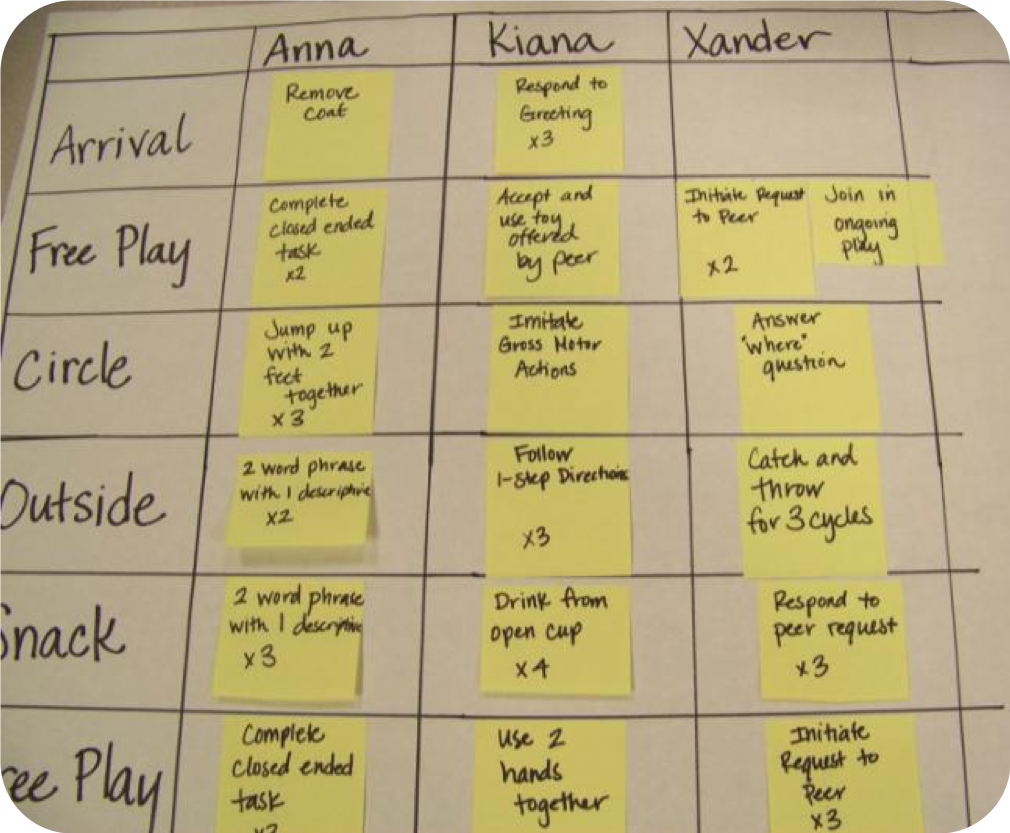 Anna Kiana Xander
Arrival
Remove
coat
Respond to
Greeting
x3
Free Play
Complete
closed ended
task
x2
Accept and
use toy
offered
by peer
Initiate Request
to Peer
x2
Join in
ongoing
play
Circle
Jump up
with 2
feet
together
x3
Imitate
Gross Motor
Actions
Answer
"where"
question
Outside
2 word phrase
with 1 descriptive
x2
Follow
1-step Directions
x3
Catch and
throw
for 3 cycles
Snack
2 word phrase
with 1 descriptive
x3
Drink from
open cup
x4
Respond to
peer request
x3
ree Play
Complete
closed ended
task
Use 2
hands
together
Initiate
Request to
Peer
x3